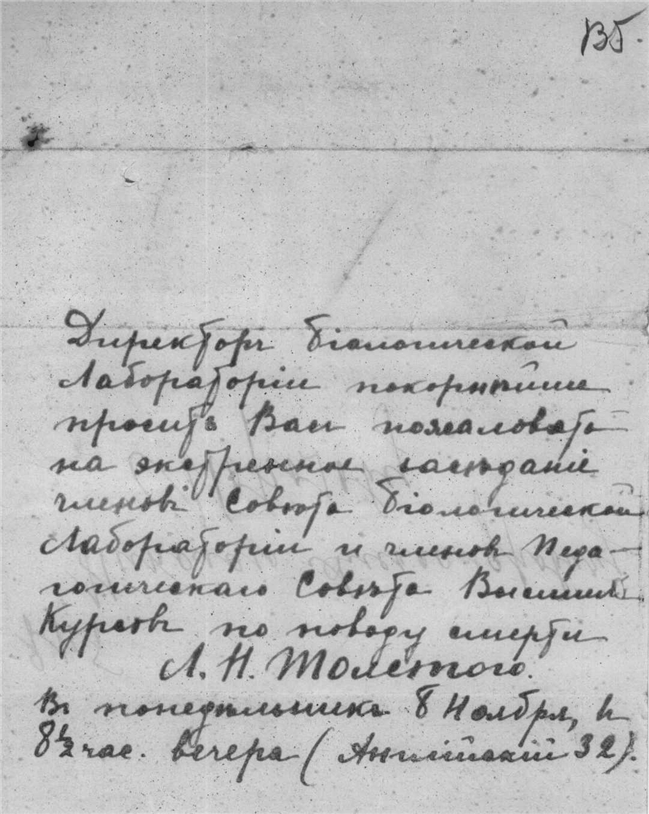 В5.
Директоръ біологической
Лабораторіи покорнѣйше
проситъ Васъ пожаловать
на экстренное засѣданіе
членовъ Совѣта біологической
Лабораторіи и членовъ Педа-
гогическаго Совѣта Высшихъ
Курсовъ по поводу смерти
Л. Н. Толстого.
Въ понедѣльникъ 8 Ноября, въ
8½ час. вечера (Англійскій 32).